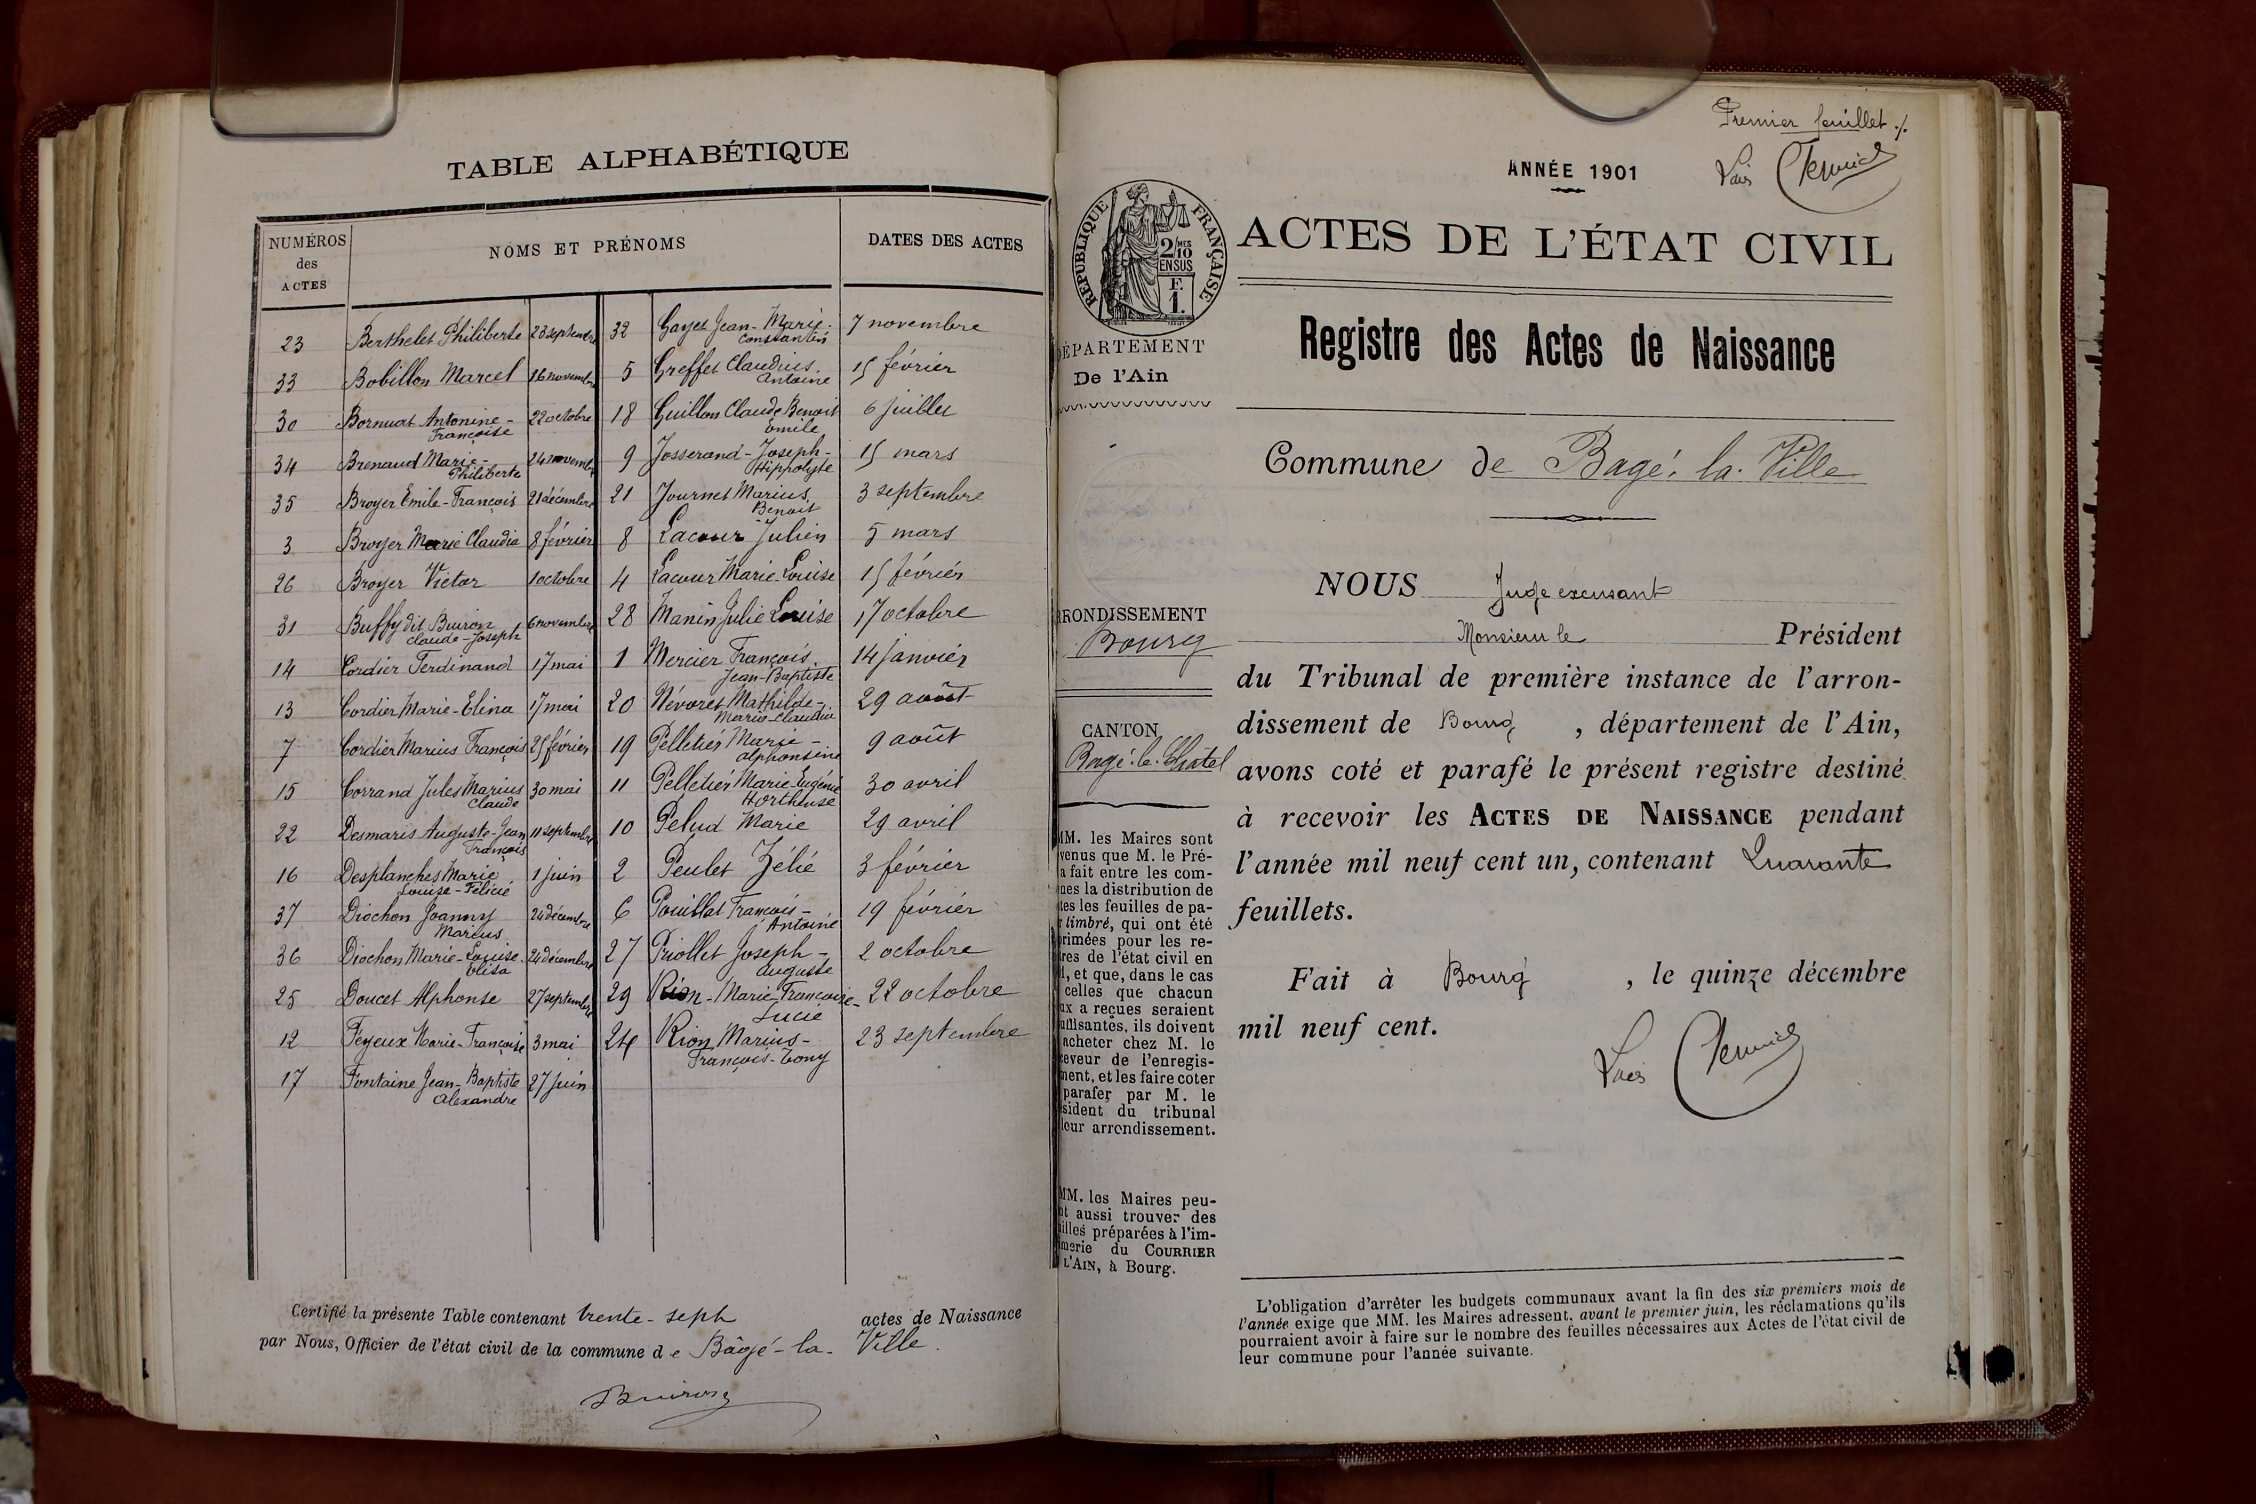 TABLE ALPHABÉTIQUE
NUMÉROS des ACTES
NOMS ET PRÉNOMS
DATES DES ACTES
23 Berthelet Philiberte 23 septembre
33 Bobillon Marcel 16 novembre
30 Bornuat Antonine-
Françoise 22 octobre
34 Brenaud Marie-
Philiberte 24 novemb
35 Broyer Emile-François 21 décembre
3 Broyer Marie Claudia 8 février
26 Broyer Victor 1 octobre
31 Buffy dit Buiron
Claude-Joseph 6 novembre
14 Cordier Ferdinand 17 mai
13 Cordier Marie-Elina 17 mai
7 Cordier Marius François 25 février
15 Corrand Jules Marius
Claude 30 mai
22 Desmaris Auguste-Jean
François 11 septembre
16 Desplanches Marie
Louise-Félicie 1 juin
37 Diochon Joanny
Marius 24 décembre
36 Diochon Marie-Louise
Elisa 24 décembre
25 Doucet Alphonse 27 septembre
12 Feyeux Marie-Françoise 3 mai
17 Fontaine Jean-Baptiste
Alexandre 27 juin
32 Gayet Jean-Marie-
Constantin 7 novembre
5 Greffet Claudius
Antoine 15 février
18 Guillon Claude Benoit
Emile 6 juillet
9 Josserand-Joseph-
Hippolyte 15 mars
21 Journet Marius
Benoit 3 septembre
8 Lacour Julien 5 mars
4 Lacour Marie-Louise 15 février
28 Manin Julie Louise 17 octobre
1 Mercier François
Jean-Baptiste 14 janvier
20 Névoret Mathilde-
Marie-Claudia 29 août
19 Pelletier Marie-
Alphonsine 9 août
11 Pelletier Marie-Eugénie
Hortense 30 avril
10 Pelud Marie 29 avril
2 Peulet Zélié 3 février
6 Pouillat François-
Antoine 19 février
27 Priollet Joseph-
Auguste 2 octobre
29 Rion-Marie Françoise-
Lucie 22 octobre
24 Rion Marius-
François-Tony 23 septembre
Certifié la présente Table contenant trente-sept actes de Naissance
par Nous, Officier de l'état civil de la commune de Bâgé-la-Ville.
Buiron
Premier feuillet ./.
ANNÉE 1901
RÉPUBLIQUE FRANÇAISE
2/10 MES
EN SUS
F.
1.
ACTES DE L'ÉTAT CIVIL
Registre des Actes de Naissance
DÉPARTEMENT
De l'Ain
Commune de Bagé-la-Ville
RONDISSEMENT
Bourg
CANTON
Bagé-le-Châtel
NOUS Juge excusant
Monsieur le Président
du Tribunal de première instance de l'arron-
dissement de Bourg , département de l'Ain,
avons coté et parafé le présent registre destiné
à recevoir les ACTES DE NAISSANCE pendant
l'année mil neuf cent un, contenant Quarante
feuillets.
Fait à Bourg , le quinze décembre
mil neuf cent.
MM. les Maires sont
venus que M. le Pré-
a fait entre les com-
nes la distribution de
tes les feuilles de pa-
r timbré, qui ont été
rimées pour les re-
res de l'état civil en
l, et que, dans le cas
celles que chacun
ux a reçues seraient
uffisantes, ils doivent
acheter chez M. le
eveur de l'enregis-
ment, et les faire coter
parafer par M. le
sident du tribunal
leur arrondissement.
MM. les Maires peu-
nt aussi trouver des
illes préparées à l'im-
merie du COURRIER
L'AIN, à Bourg.
L'obligation d'arrêter les budgets communaux avant la fin des six premiers mois de
l'année exige que MM. les Maires adressent, avant le premier juin, les réclamations qu'ils
pourraient avoir à faire sur le nombre des feuilles nécessaires aux Actes de l'état civil de
leur commune pour l'année suivante.